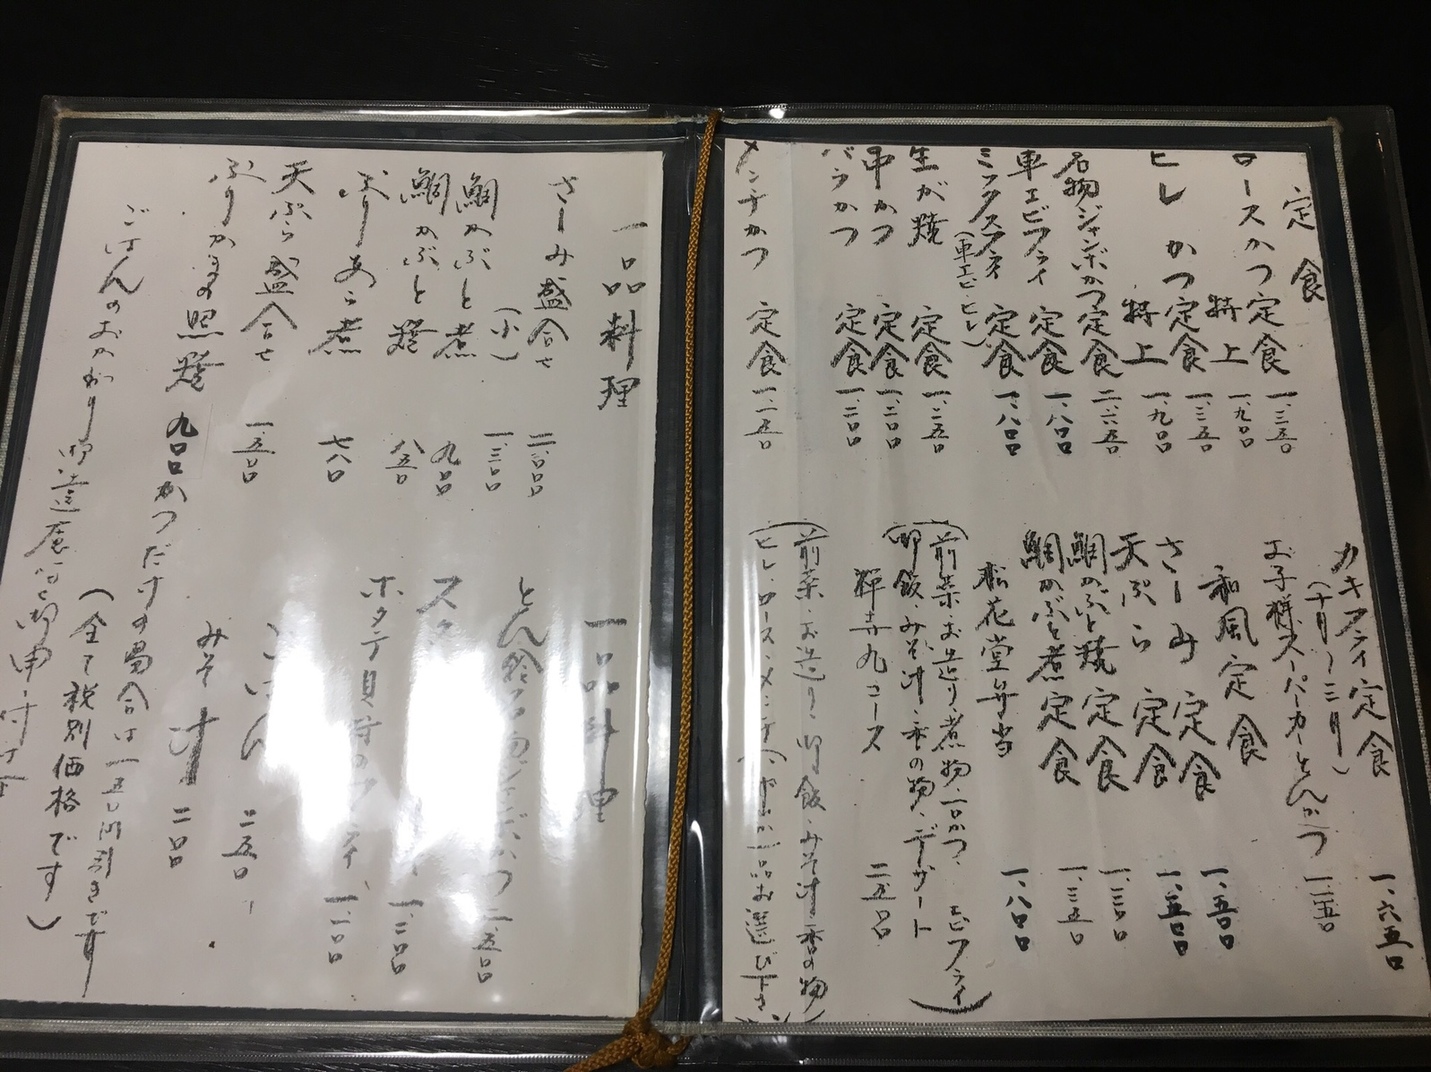 定食
ロースかつ定食 一、三五〇
特上 一、九〇〇
ヒレかつ定食 一、三五〇
特上 一、九〇〇
名物ジャンボかつ定食 二、六五〇
車エビフライ定食 一、八〇〇
ミックスフライ定食 一、八〇〇
(車エビ・ヒレ)
生が焼定食 一、二五〇
串かつ定食 一、二〇〇
バラかつ定食 一、二〇〇
メンチかつ定食 一、一五〇
カキフライ定食 一、六五〇
(十月〜三月)
お子様スーパーカーとんかつ 一、一五〇
和風定食
さしみ定食 一、五〇〇
天ぷら定食 一、五〇〇
鯛かぶと焼定食 一、三〇〇
鯛かぶと煮定食 一、三五〇
松花堂弁当 一、八〇〇
(前菜・お造り・煮物・一口かつ・エビフライ
御飯・みそ汁・香の物・デザート)
コース 二五〇〇
(前菜・お造り・御飯・みそ汁・香の物)
一品お選び下さい
一品料理
さしみ盛合せ 二、〇〇〇
(小) 一、三〇〇
鯛かぶと煮 九〇〇
鯛かぶと焼 八五〇
ぶりあら煮 七八〇
天ぷら盛合せ 一、五〇〇
ぶりかまの照焼 九〇〇
一品料理
ジャンボかつ 二、五〇〇
一、三〇〇
ホタテ貝 フライ 一、二〇〇
ごはん 二五〇
みそ汁 二〇〇
かつだけの場合は一五〇円引きです
(全て税別価格です)
ごはんのおかわり御遠慮なく御申し付け下